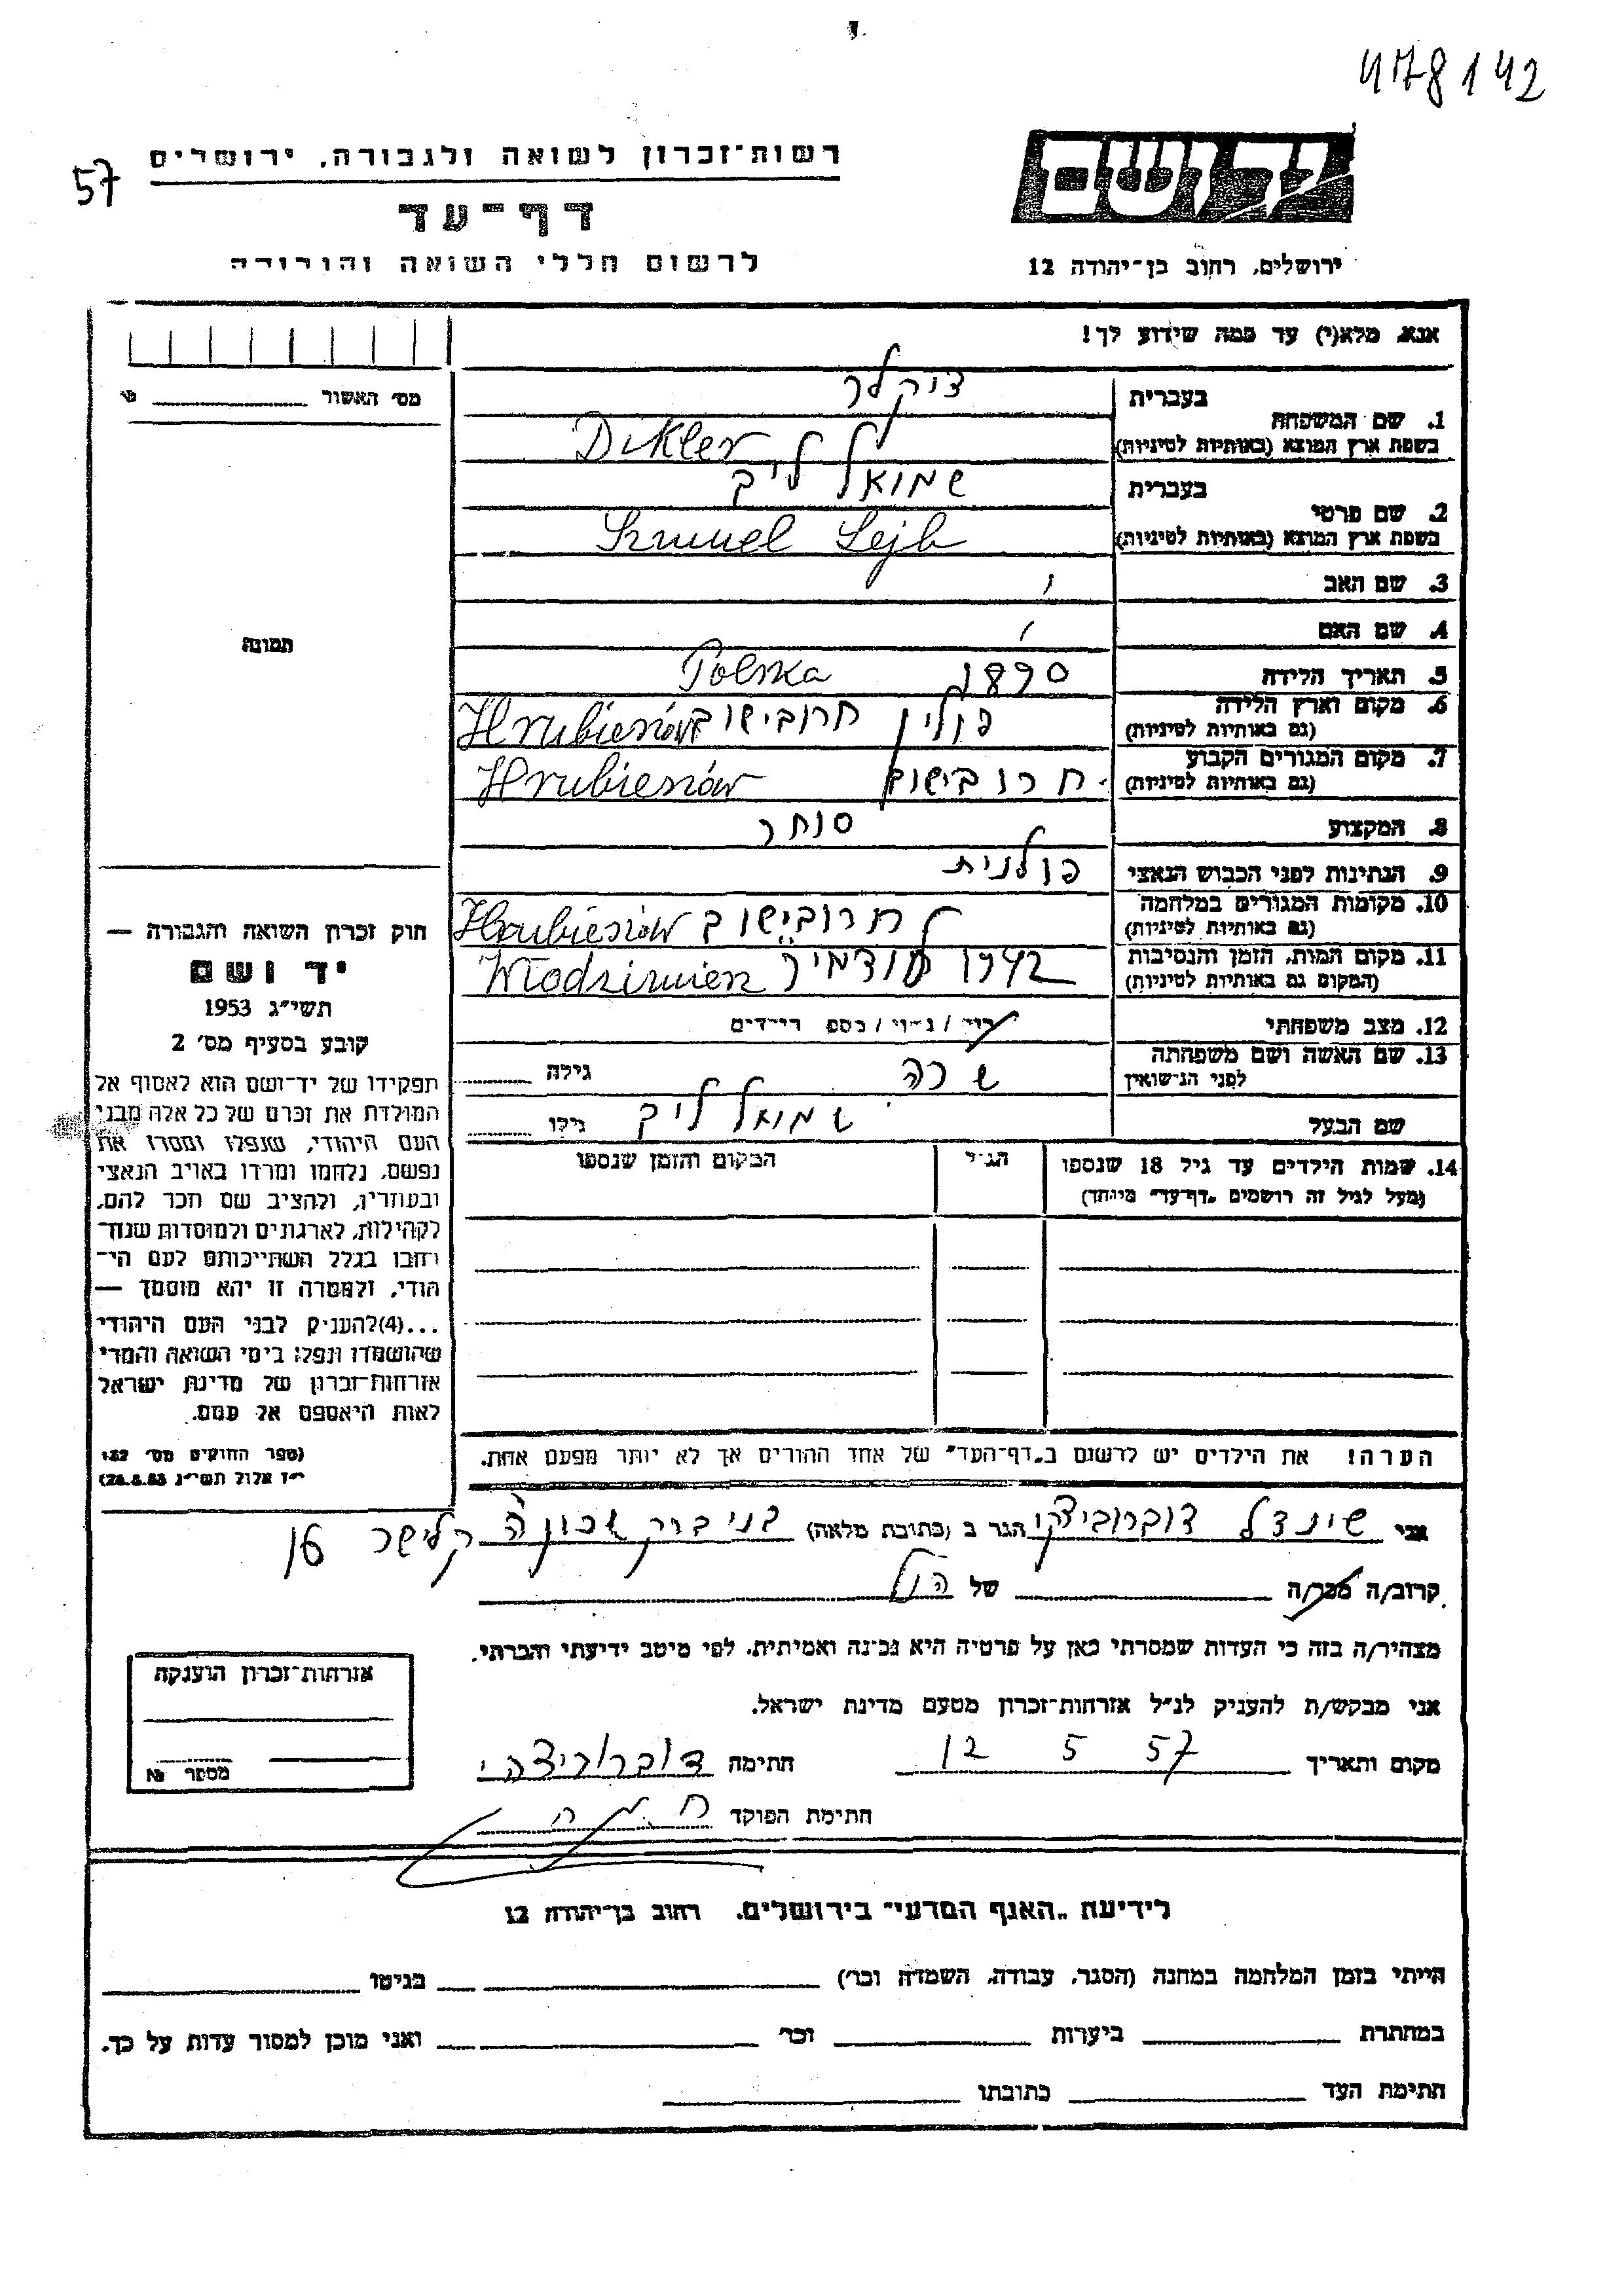 478142
57
רשות־זכרון לשואה ולגבורה, ירושלים
יד ושם
דף־עד
לרשום חללי השואה והגבורה
ירושלים, רחוב בן־יהודה 12
אנא, מלא(י) עד כמה שידוע לך!
מס׳ האשור
בעברית דיקלר
1. שם המשפחה
בשפת ארץ המוצא (באותיות לטיניות) Dikler
בעברית שמואל לייב
2. שם פרטי
בשפת ארץ המוצא (באותיות לטיניות) Szmuel Lejb
3. שם האב
4. שם האם
תמונה
5. תאריך הלידה 1890 Polska
6. מקום וארץ הלידה פולין חרובישוב Hrubieszów
(גם באותיות לטיניות)
7. מקום המגורים הקבוע חרובישוב Hrubieszów
(גם באותיות לטיניות)
8. המקצוע סוחר
9. הנתינות לפני הכבוש הנאצי פולנית
10. מקומות המגורים במלחמה חרובישוב Hrubieszów
(גם באותיות לטיניות)
11. מקום המות, הזמן והנסיבות 1942 לודמיר Włodzimierz
(המקום גם באותיות לטיניות)
12. מצב משפחתי
13. שם האשה ושם משפחתה שרה גילה
לפני הנישואין
שם הבעל שמואל לייב גילו
14. שמות הילדים עד גיל 18 שנספו הגיל המקום והזמן שנספו
(מעל לגיל זה רושמים „דף־עד״ מיוחד)
הערה! את הילדים יש לרשום ב„דף־העד״ של אחד ההורים אך לא יותר מפעם אחת.
חוק זכרון השואה והגבורה —
יד ושם
תשי״ג 1953
קובע בסעיף מס׳ 2
תפקידו של יד־ושם הוא לאסוף אל
המולדת את זכרם של כל אלה מבני
העם היהודי, שנפלו ומסרו את
נפשם, נלחמו ומרדו באויב הנאצי
ובעוזריו, ולהציב שם וזכר להם,
לקהילות, לארגונים ולמוסדות שנח־
רבו בגלל השתייכותם לעם הי־
הודי, ולמטרה זו יהא מוסמך —
...(4)להעניק לבני העם היהודי
שהושמדו ונפלו בימי השואה והמרי
אזרחות־זכרון של מדינת ישראל
לאות היאספם אל עמם.
(ספר החוקים מס׳ 132
י״ז אלול תשי״ג 28.8.53)
אני שינדל דוברוביצקי הגר ב (כתובת מלאה) בני ברק שכונה ה קלישר 16
קרוב/ה מכר/ה של הנ״ל
מצהיר/ה בזה כי העדות שמסרתי כאן על פרטיה היא נכונה ואמיתית, לפי מיטב ידיעתי והכרתי.
אני מבקש/ת להעניק לנ״ל אזרחות־זכרון מטעם מדינת ישראל.
מקום ותאריך 12 5 57 חתימה דוברוביצקי
חתימת הפוקד
אזרחות־זכרון הוענקה
מספר №
לידיעת „האגף המדעי״ בירושלים, רחוב בן־יהודה 12
הייתי בזמן המלחמה במחנה (הסגר, עבודה, השמדה וכו׳) בגיטו
במחתרת ביערות וכו׳ ואני מוכן למסור עדות על כך.
חתימת העד כתובתו